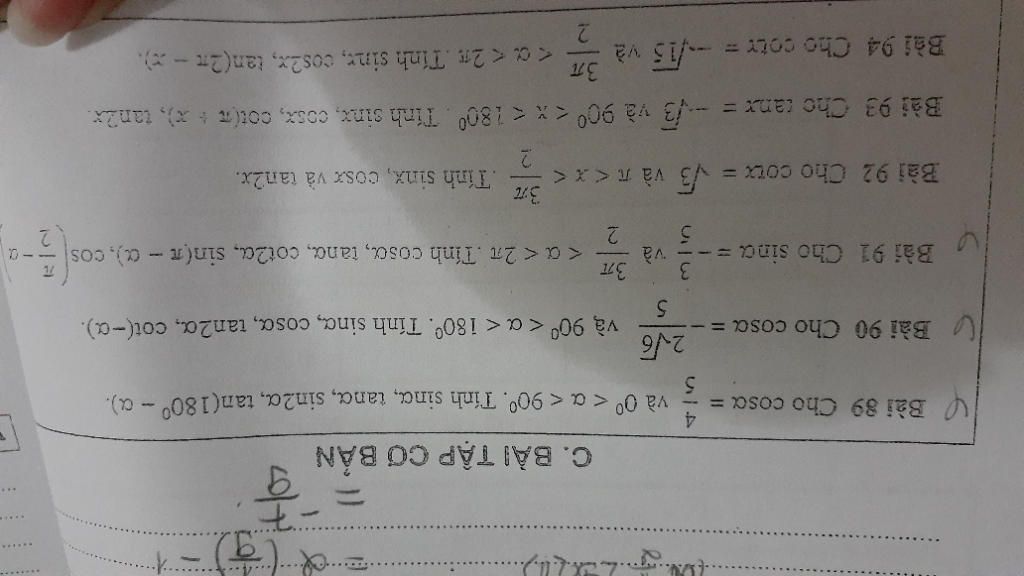 = 2(1/9) - 1
= -7/9
C. BÀI TẬP CƠ BẢN
Bài 89 Cho cosα = 4/5 và 0⁰ < α < 90⁰. Tính sinα, tanα, sin2α, tan(180⁰ – α).
Bài 90 Cho cosα = –2√6/5 và 90⁰ < α < 180⁰. Tính sinα, cosα, tan2α, cot(–α).
Bài 91 Cho sinα = –3/5 và 3π/2 < α < 2π. Tính cosα, tanα, cot2α, sin(π – α), cos(π/2 – α)
Bài 92 Cho cotx = √3 và π < x < 3π/2. Tính sinx, cosx và tan2x.
Bài 93 Cho tanx = –√3 và 90⁰ < x < 180⁰. Tính sinx, cosx, cot(π + x), tan2x.
Bài 94 Cho cotx = –√15 và 3π/2 < α < 2π. Tính sinx, cos2x, tan(2π – x).